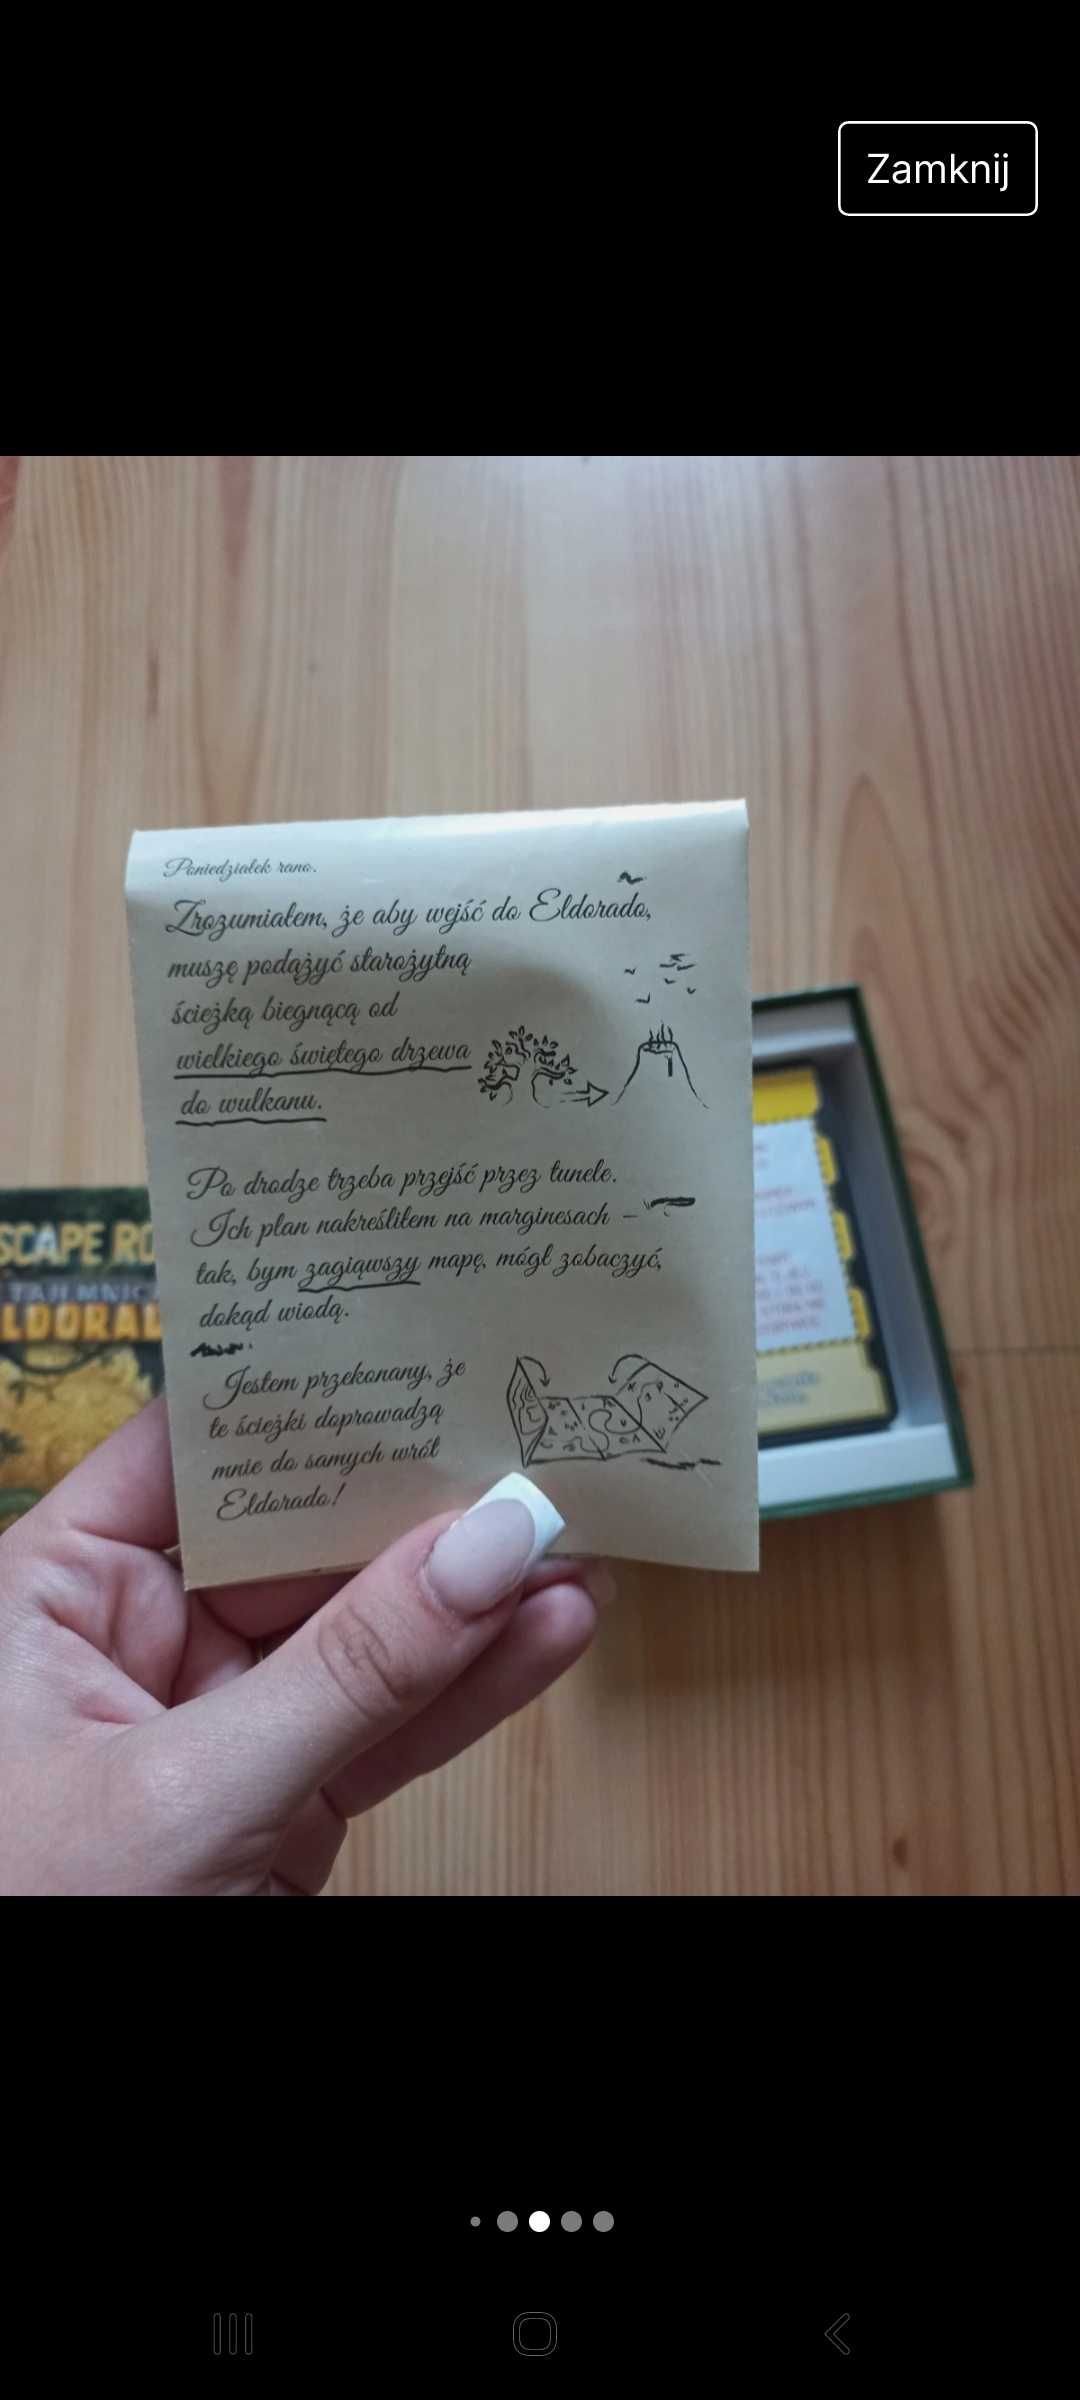 Zamknij
Poniedziałek rano.
Zrozumiałem, że aby wejść do Eldorado,
muszę podążyć starożytną
ścieżką biegnącą od
wielkiego świętego drzewa
do wulkanu.
Po drodze trzeba przejść przez tunele.
Ich plan nakreśliłem na marginesach –
tak, bym zagiąwszy mapę, mógł zobaczyć,
dokąd wiodą.
Jestem przekonany, że
te ścieżki doprowadzą
mnie do samych wrót
Eldorado!
SCAPE RO
TAJEMNICA
LDORAD